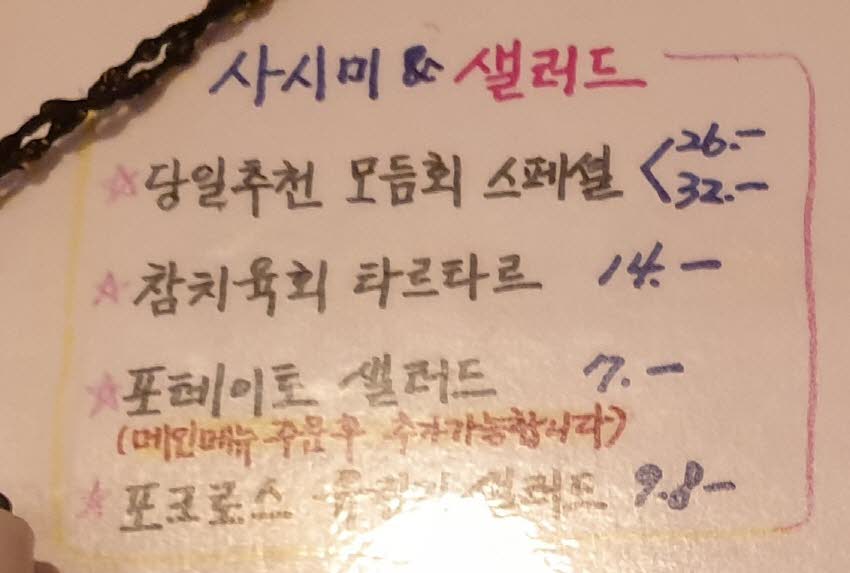 사시미 & 샐러드
당일추천 모듬회 스페셜 < 26.-
32.-
참치육회 타르타르 14.-
포테이토 샐러드 7.-
(메인메뉴 주문후 추가가능합니다)
포크로스 샐러드 9.8-